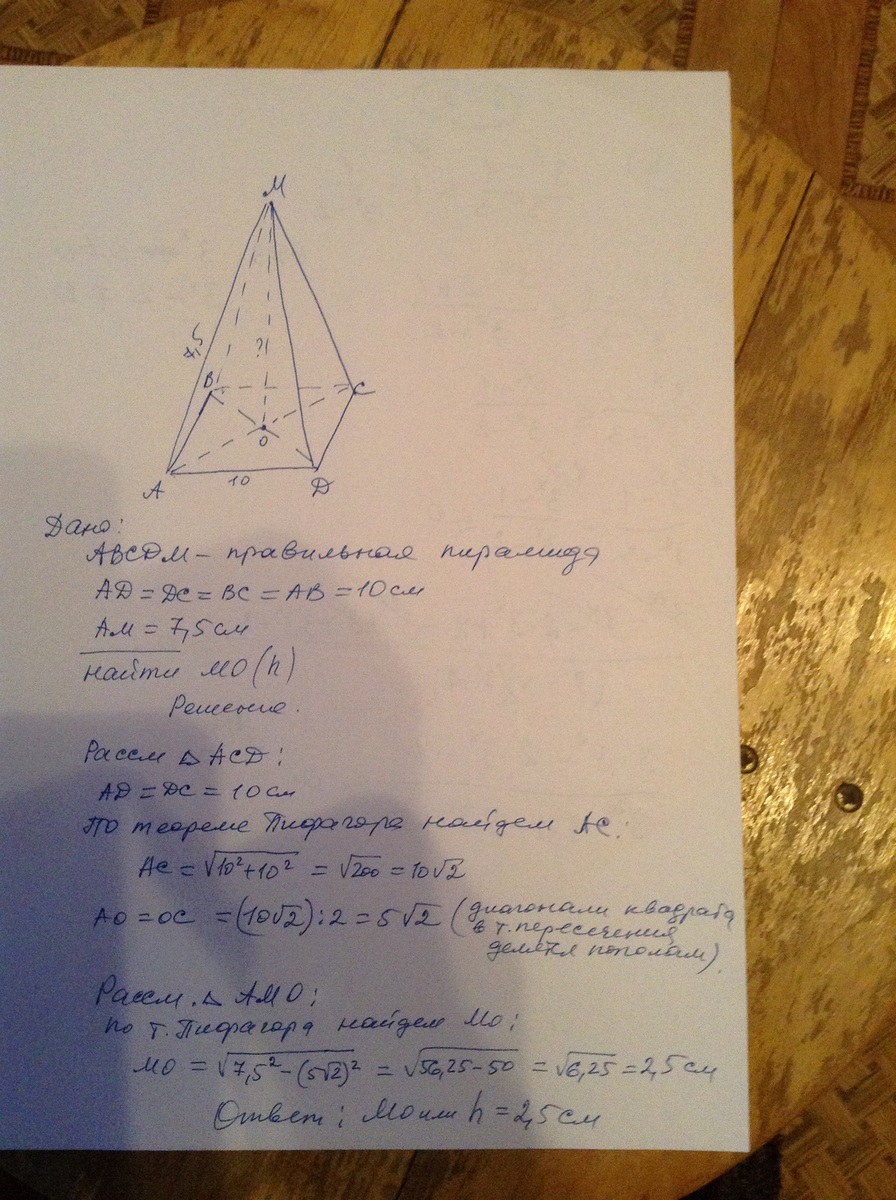 M
7,5
?
B
C
O
A
10
D
Дано:
ABCDM – правильная пирамида
AD = DC = BC = AB = 10 см
AM = 7,5 см
найти MO (h)
Решение.
Рассм △ ACD:
AD = DC = 10 см
По теореме Пифагора найдем AC:
AC = √10²+10² = √200 = 10√2
AO = OC = (10√2):2 = 5√2 (диагонали квадрата
в т. пересечения
делятся пополам).
Рассм. △ AMO:
по т. Пифагора найдем MO:
MO = √7,5² – (5√2)² = √56,25 – 50 = √6,25 = 2,5 см
Ответ: MO или h = 2,5 см